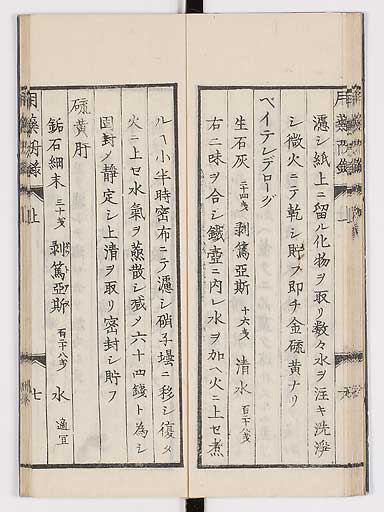 濾シ紙上ニ留ル化物ヲ取リ数々水ヲ注キ洗淨
シ微火ニテ乾シ貯フ即チ金硫黄ナリ
ベイテンデローグ
生石灰 二十四戋 剥篤亞斯 十六戋 清水 百二十八戋
右二味ヲ合シ鐵壺ニ内レ水ヲ加ヘ火ニ上セ煮
ルヿ小半時密布ニテ濾シ硝子壜ニ移シ復タ
火ニ上セ水氣ヲ蒸散シ残メ六十四錢ト為シ
固封シ静定シ上清ヲ取リ密封シ貯フ
硫黄肝
鈷石細末 三十戋 剥篤亞斯 百二十八戋 水 適宜
上 七